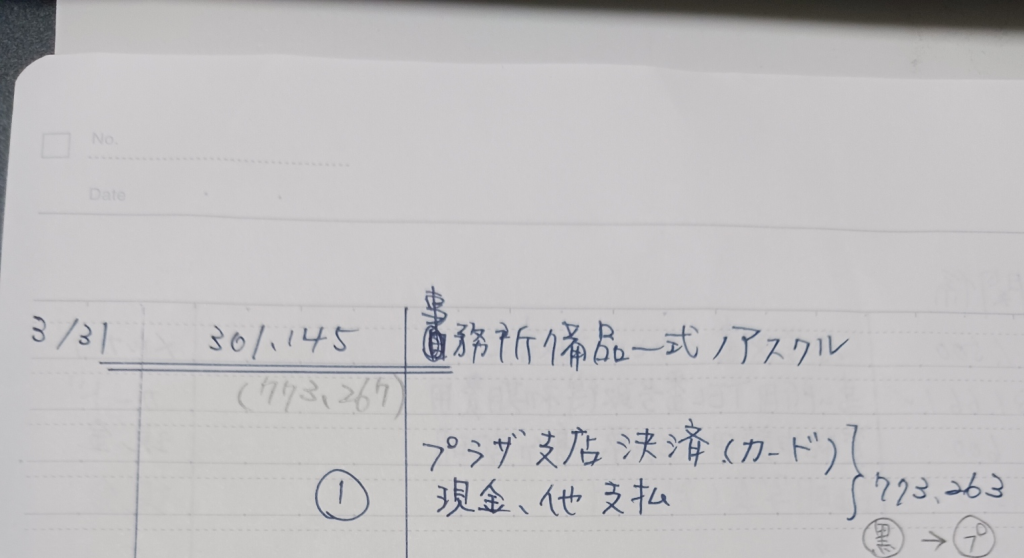 No.
Date
3/31 301,145 事務所備品一式/アスクル
(773,267)
プラザ支店決済(カード)
現金、他支払 773,263
①
黒→プ